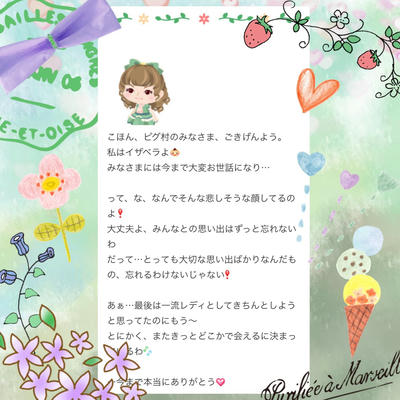 AILLES
E-ET-OISE
こほん、ピグ村のみなさま、ごきげんよう。
私はイザベラよ
みなさまには今まで大変お世話になり…
って、な、なんでそんな悲しそうな顔してるの
よ❣
大丈夫よ、みんなとの思い出はずっと忘れない
わ
だって…とっても大切な思い出ばかりなんだも
の、忘れるわけないじゃない❣
あぁ…最後は一流レディとしてきちんとしよう
と思ってたのにもう〜
とにかく、またきっとどこかで会えるに決まっ
るわ
今まで本当にありがとう💗
Purifiée à Marseill